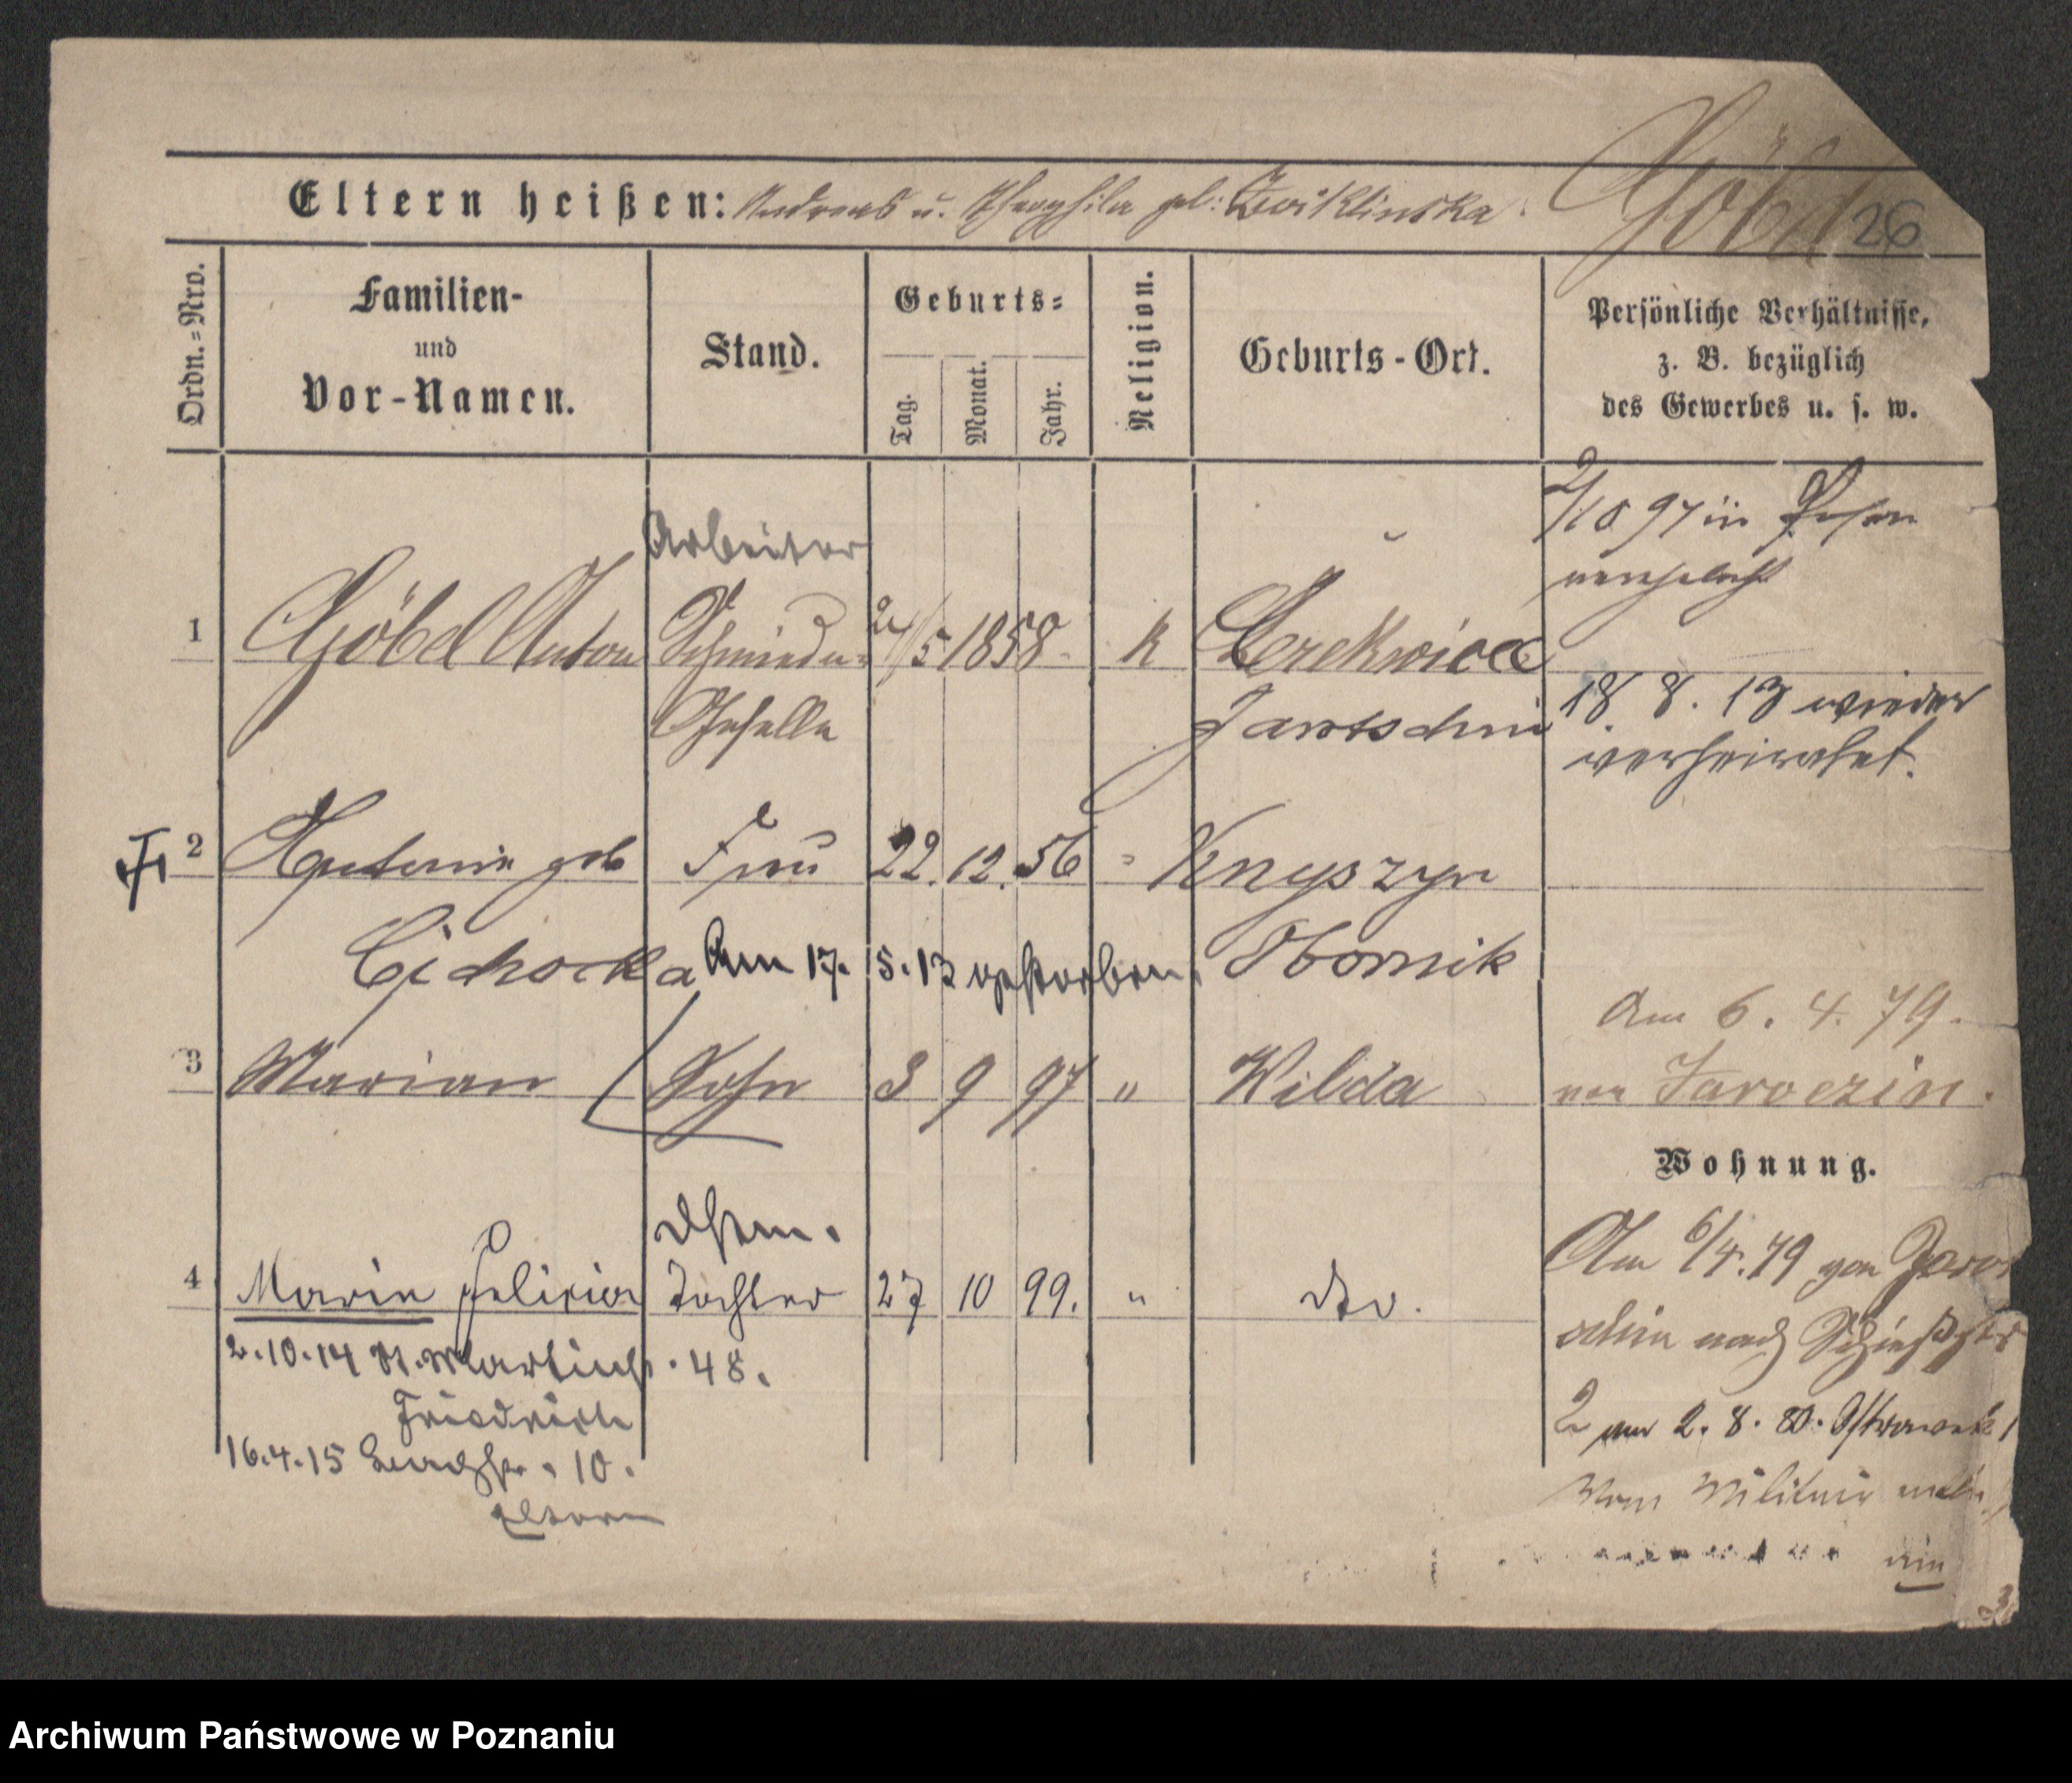 Göbel
26
Eltern heißen: Andreas u. Theophila geb: Zwiklinska.
Ordn.=Nro.
Familien-
und
Vor-Namen.
Stand.
Geburts=
Tag.
Monat.
Jahr.
Religion.
Geburts-Ort.
Persönliche Verhältnisse,
z. B. bezüglich
des Gewerbes u. s. w.
2/10 97 in Posen
verehelicht
Arbeiter
1 Göbel Anton Schmiede= 24/5 1858 K Cerekwice
Geselle Jarotschin
18. 8. 13 wieder
verheiratet.
2 Antonie geb Frau 22. 12. 56 " Knyszyn
Cichocka Am 17. 5. 13 gestorben. Obornik
Am 6. 4. 79.
3 Marian Sohn 3 9 97 " Wilda von Jaroczin.
Wohnung.
4 Marie Felicia Tochter 27 10 99. " do.
Am 6/4. 79 von Jarot
schin nach Schießstr
2 am 2. 8. 80.
2.10.14 St. Martinstr. 48.
Friedrich
16.4.15 10.
Eltern
Vom Militair
ein
Archiwum Państwowe w Poznaniu